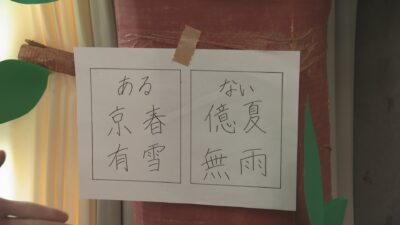 ある
京春
有雪
ない
億夏
無雨